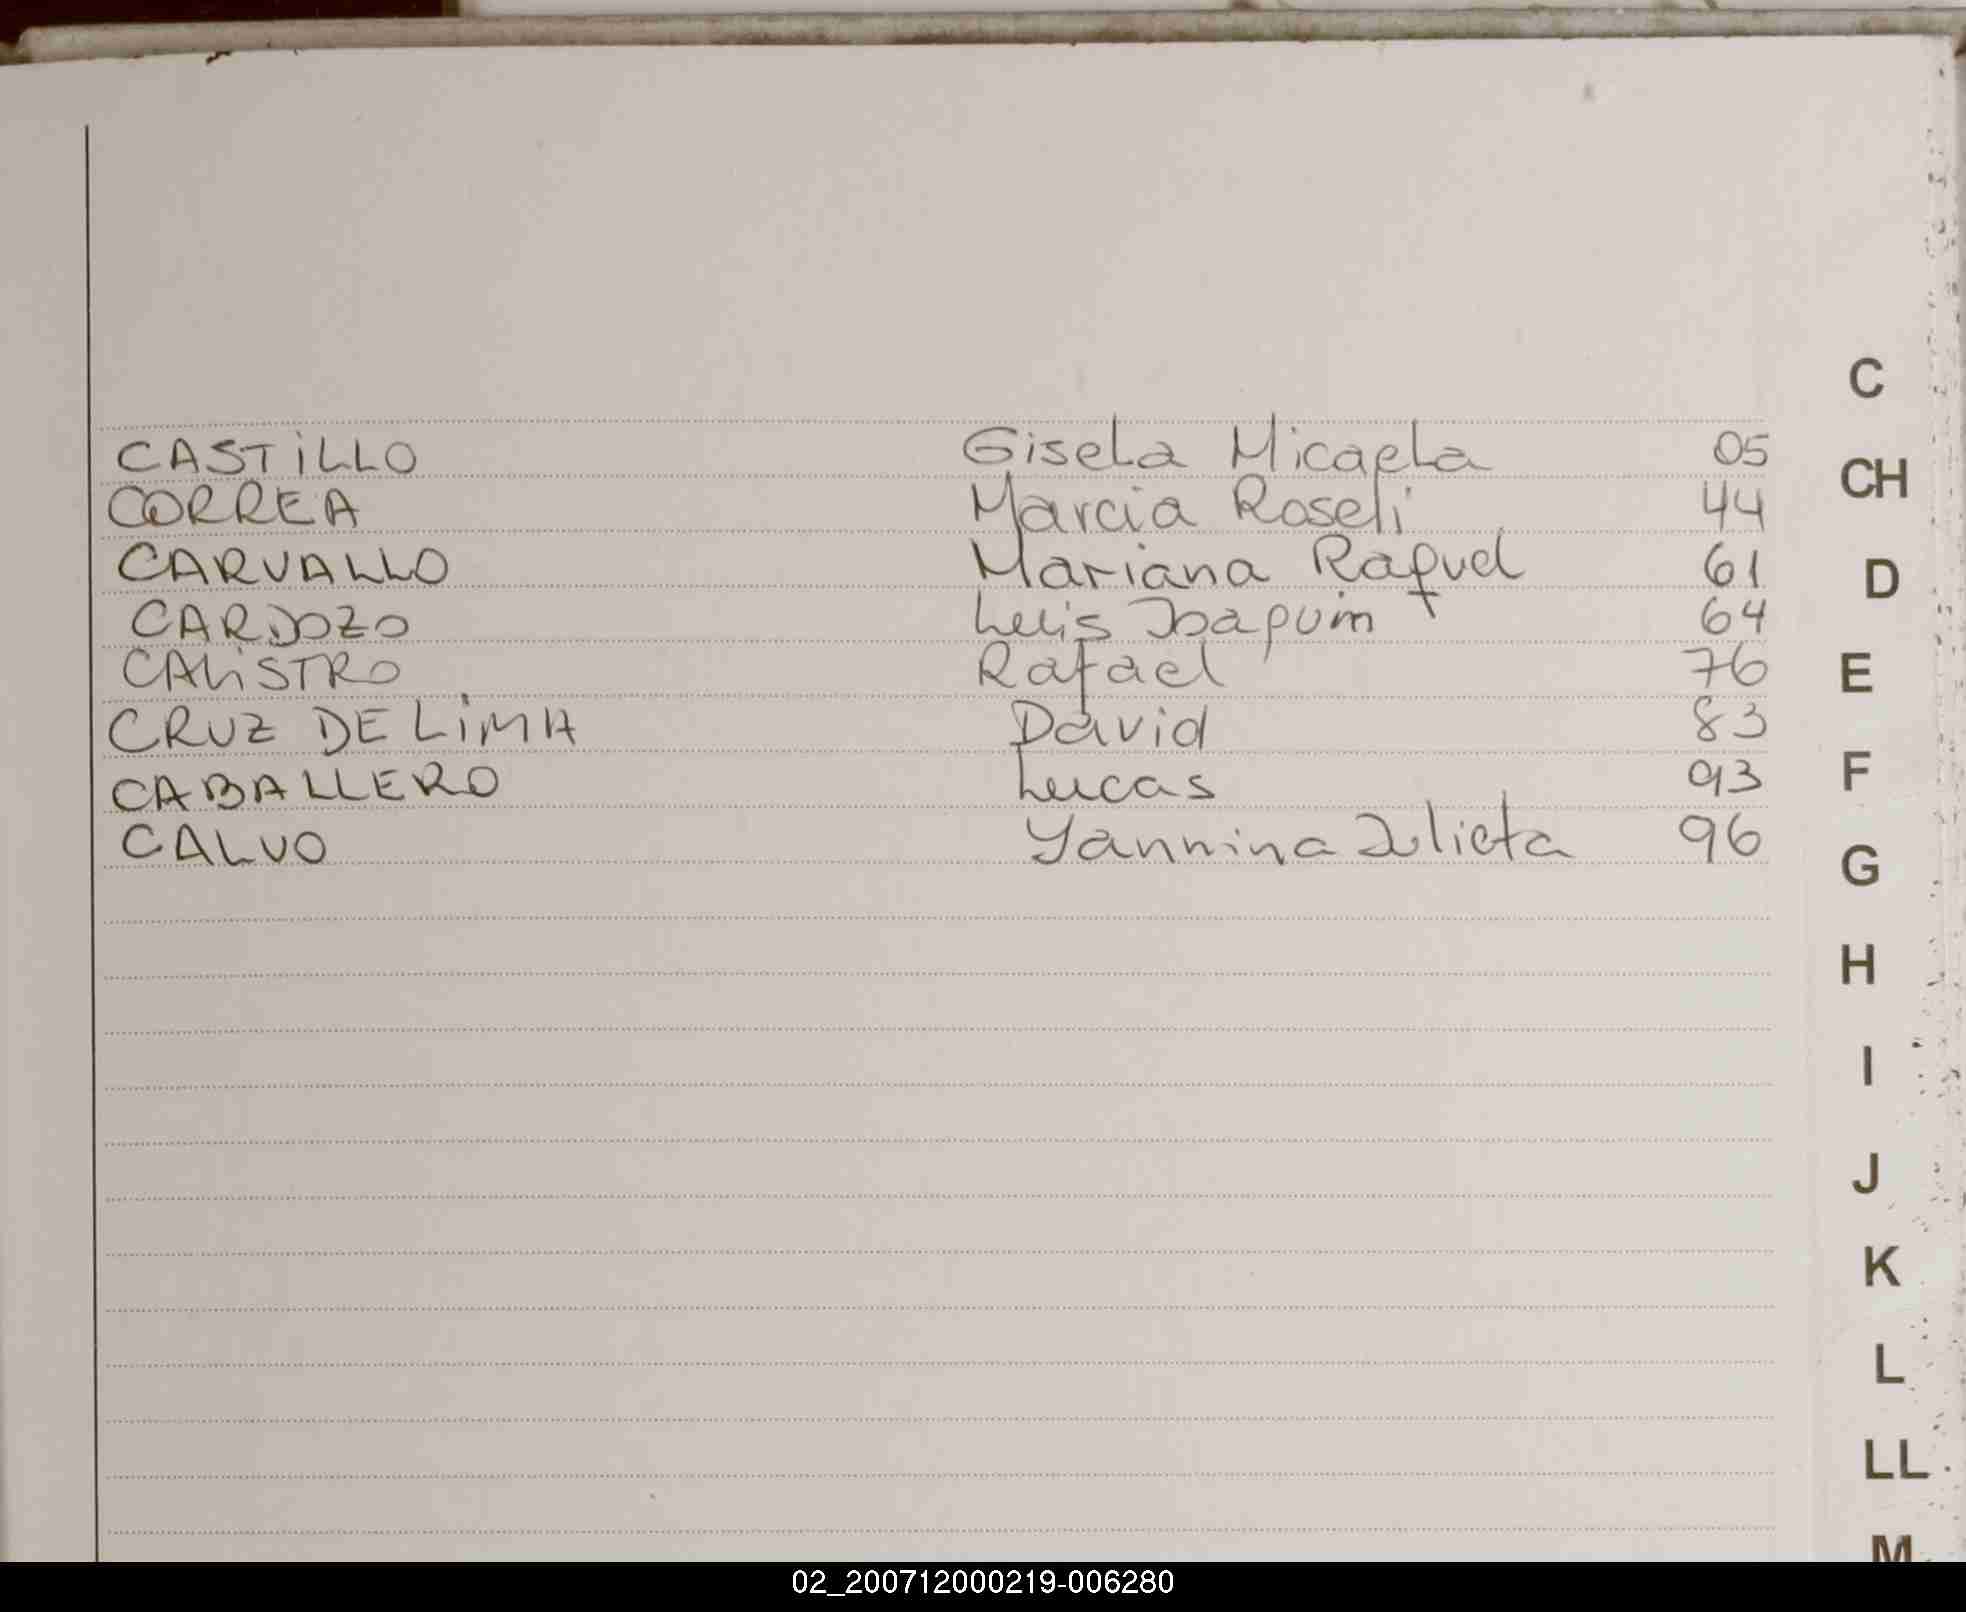 CASTiLLO Gisela Micaela 05
CORREA Marcia Roseli 44
CARVALLO Mariana Raquel 61
CARDOZO Luis Joaquim 64
CALiSTRO Rafael 76
CRUZ DE LiMA David 83
CABALLERO Lucas 93
CALVO Yannina Julieta 96
C
CH
D
E
F
G
H
I
J
K
L
LL
M
02_200712000219-006280